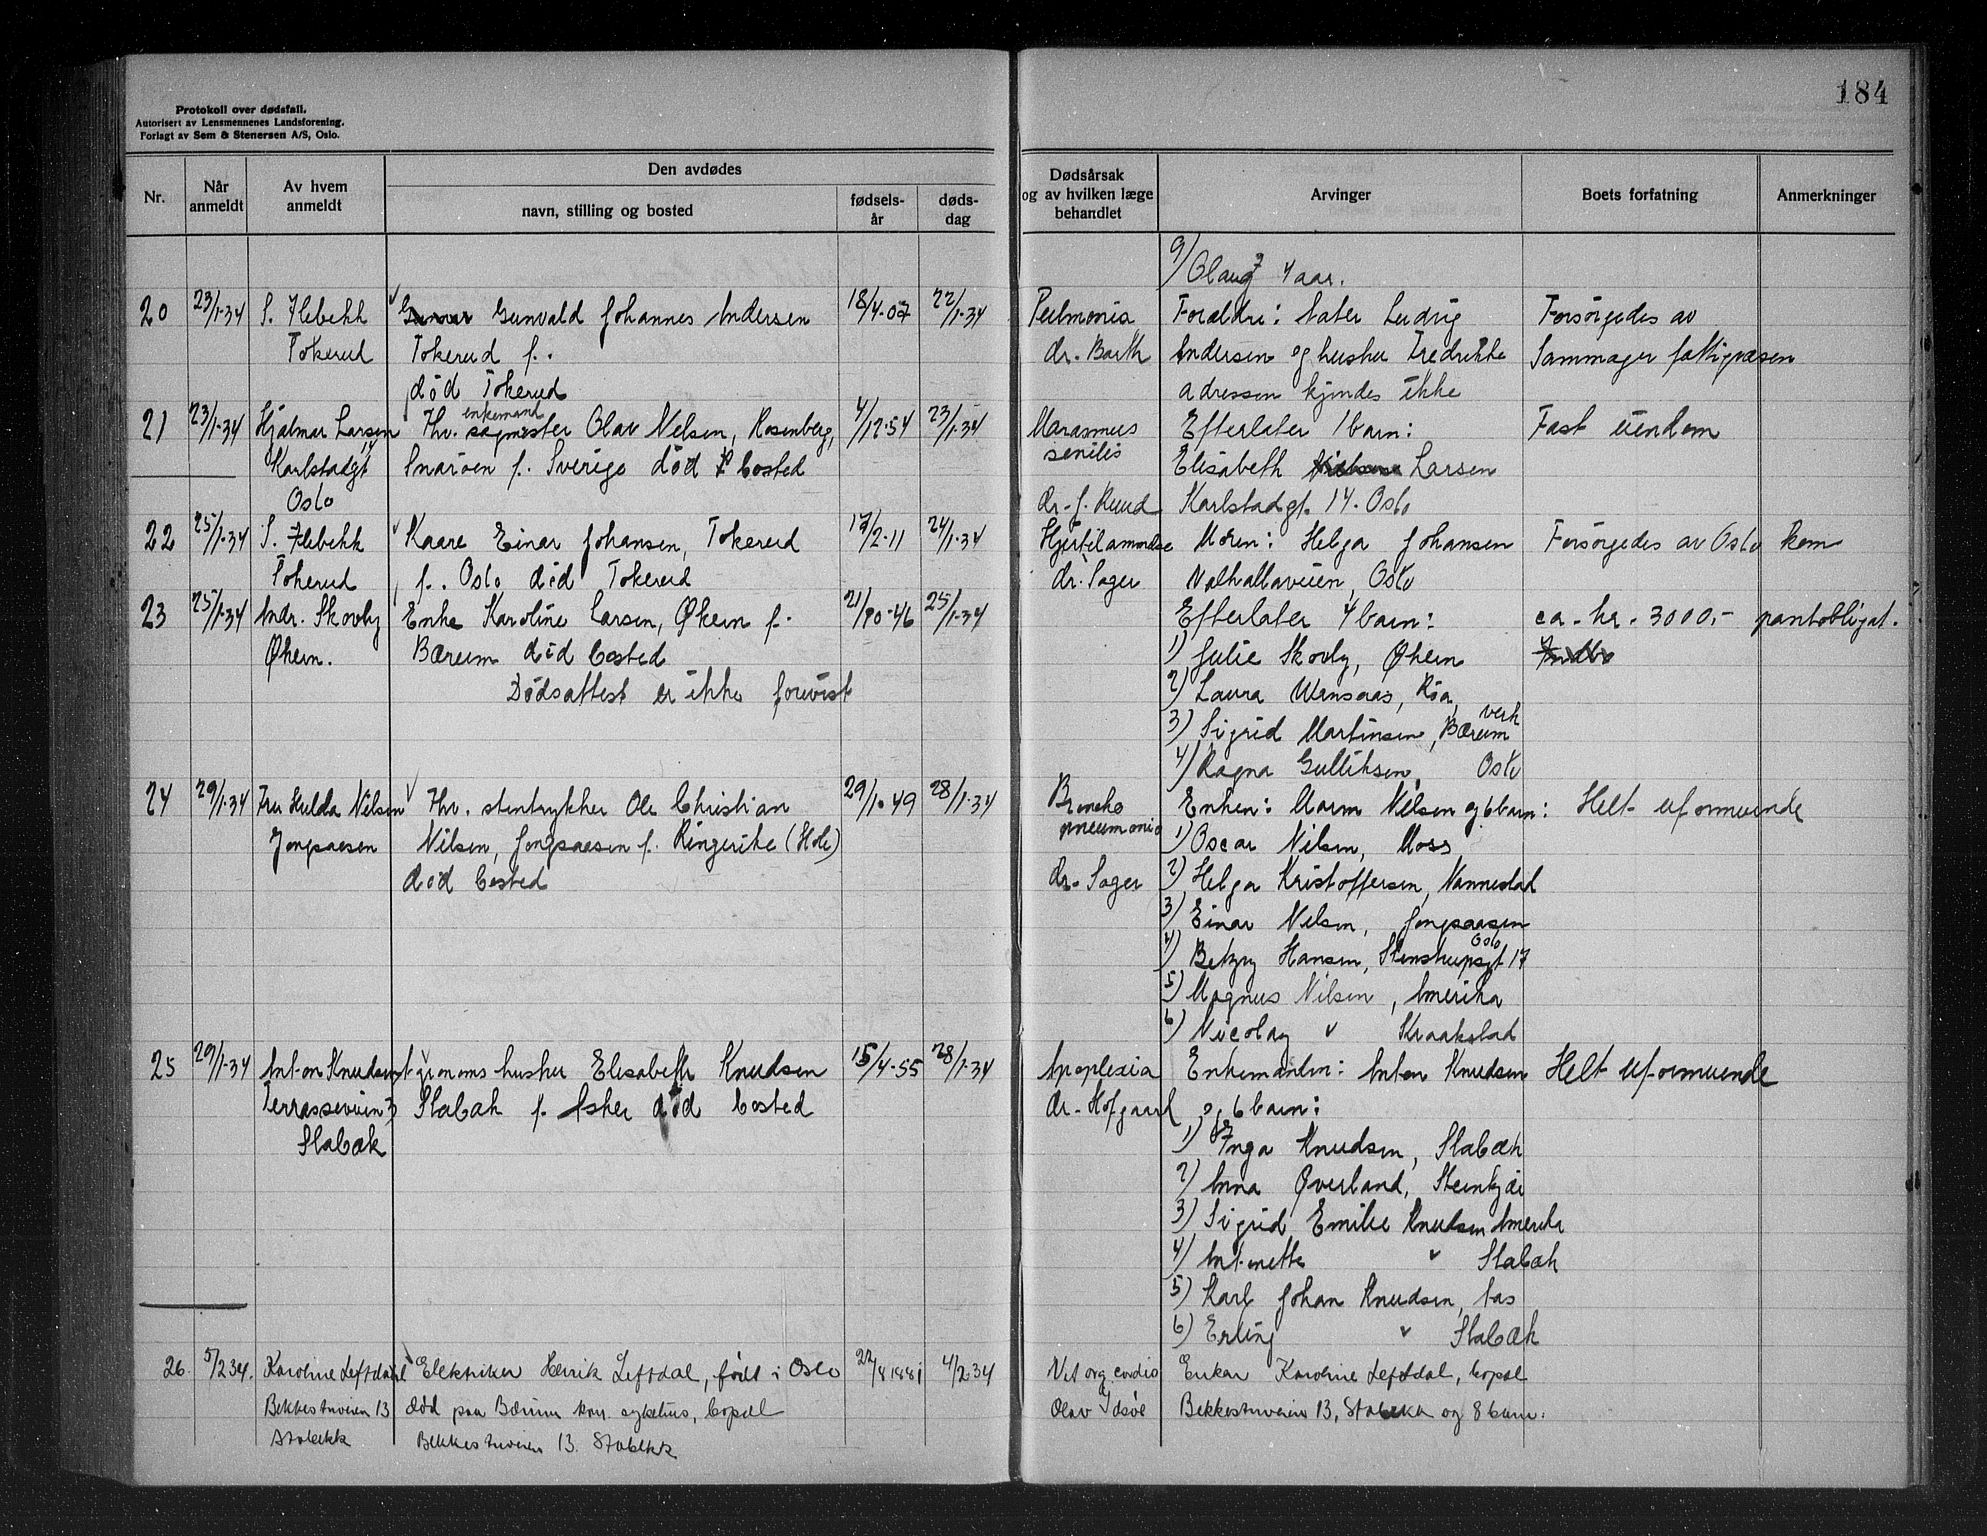 184
Protokoll over dødsfall.
Autorisert av Lensmennenes Landsforening.
Forlagt av Sem & Stenersen A/S, Oslo.
Nr.
Når anmeldt
Av hvem anmeldt
Den avdødes
navn, stilling og bosted
fødsels-år
døds-dag
Dødsårsak og av hvilken læge behandlet
Arvinger
Boets forfatning
Anmerkninger
9/ Olaug 4 aar.
20 23/1-34 S. Flebekk Gunvald Johannes Andersen 18/4-07 22/1-34 Pulmonia Foræeldre: Mater Ludvig Forsørgedes av
Tokerud Tokerud f. dr. Barth Andersen og hustru Fredrikke fattigvæsen
død Tokerud adressen kjendes ikke
21 23/1-34 Hjalmar Larsen Fhv. enkemand sagmester Olav Nelsen, Rosenberg, 4/12-54 23/1-34 Marasmus senilis Efterlater 1 barn: Fast eiendom
Karlstadgt Snarøen f. Sverige død bosted Elisabeth Larsen
Oslo dr. J. Ruud Karlstadgt. 14. Oslo
22 25/1-34 S. Flebekk Kaare Einar Johansen, Tokerud 17/2-11 24/1-34 Hjertelammelse Moren: Helga Johansen Forsørgedes av Oslo kom
Tokerud f. Oslo død Tokerud dr. Sager Valhallaveien, Oslo
23 25/1-34 Andr. Skovly Enke Karoline Larsen, Økern f. 21/10-46 25/1-34 Efterlater 4 barn: ca. kr. 3000,- pantobligat.
Økern. Bærum død bosted 1) Julie Skovly, Økern
Dødsattest er ikke forevist 2) Laura Wensaas, Røa,
3) Sigrid Martinsen, Bærum verk
4) Ragna Gulliksen, Oslo
24 29/1-34 Fru Hulda Nilsen Fhv. stentrykker Ole Christian 29/10-49 28/1-34 Broncho pneumonia Enken: Maren Nilsen og 6 barn: Helt uformuende
Jongsaasen Nilsen, Jongsaasen f. Ringerike (Hole) 1) Oscar Nilsen, Moss
død bosted dr. Sager 2) Helga Kristoffersen, Nannestad
3) Einar Nilsen, Jongsaasen
4) Betzy Hansen, Stenstrupsgt 17 Oslo
5) Magnus Nilsen, Amerika
6) Nicolay " Kraakstad
25 29/1-34 Anton Knudsen Agronoms hustru Elisabeth Knudsen 15/4-55 28/1-34 Apoplexia Enkemanden: Anton Knudsen Helt uformuende
Terrasseveien 3, Stabæk f. Asker død bosted dr. Hofgaard og 6 barn:
Stabæk 1) Inga Knudsen, Stabæk
2) Anna Øverland, Steinkjær
3) Sigrid Emilie Knudsen Amerika
4) Antonette " Stabæk
5) Karl Johan Knudsen, Aas
6) Erling " Stabæk
26. 5/2 34. Karoline Leftdahl Elektriker Henrik Leftdal, født i Oslo 22/8 1881 4/2 34 Vit org cordis Enken Karoline Leftdal, bopæl
Bekkestuveien 13 død paa Bærum kom. sykehus, bopæl Olav Ydsøe Bekkestuveien 13, Stabekk og 8 barn:
Stabekk Bekkestuveien 13. Stabekk